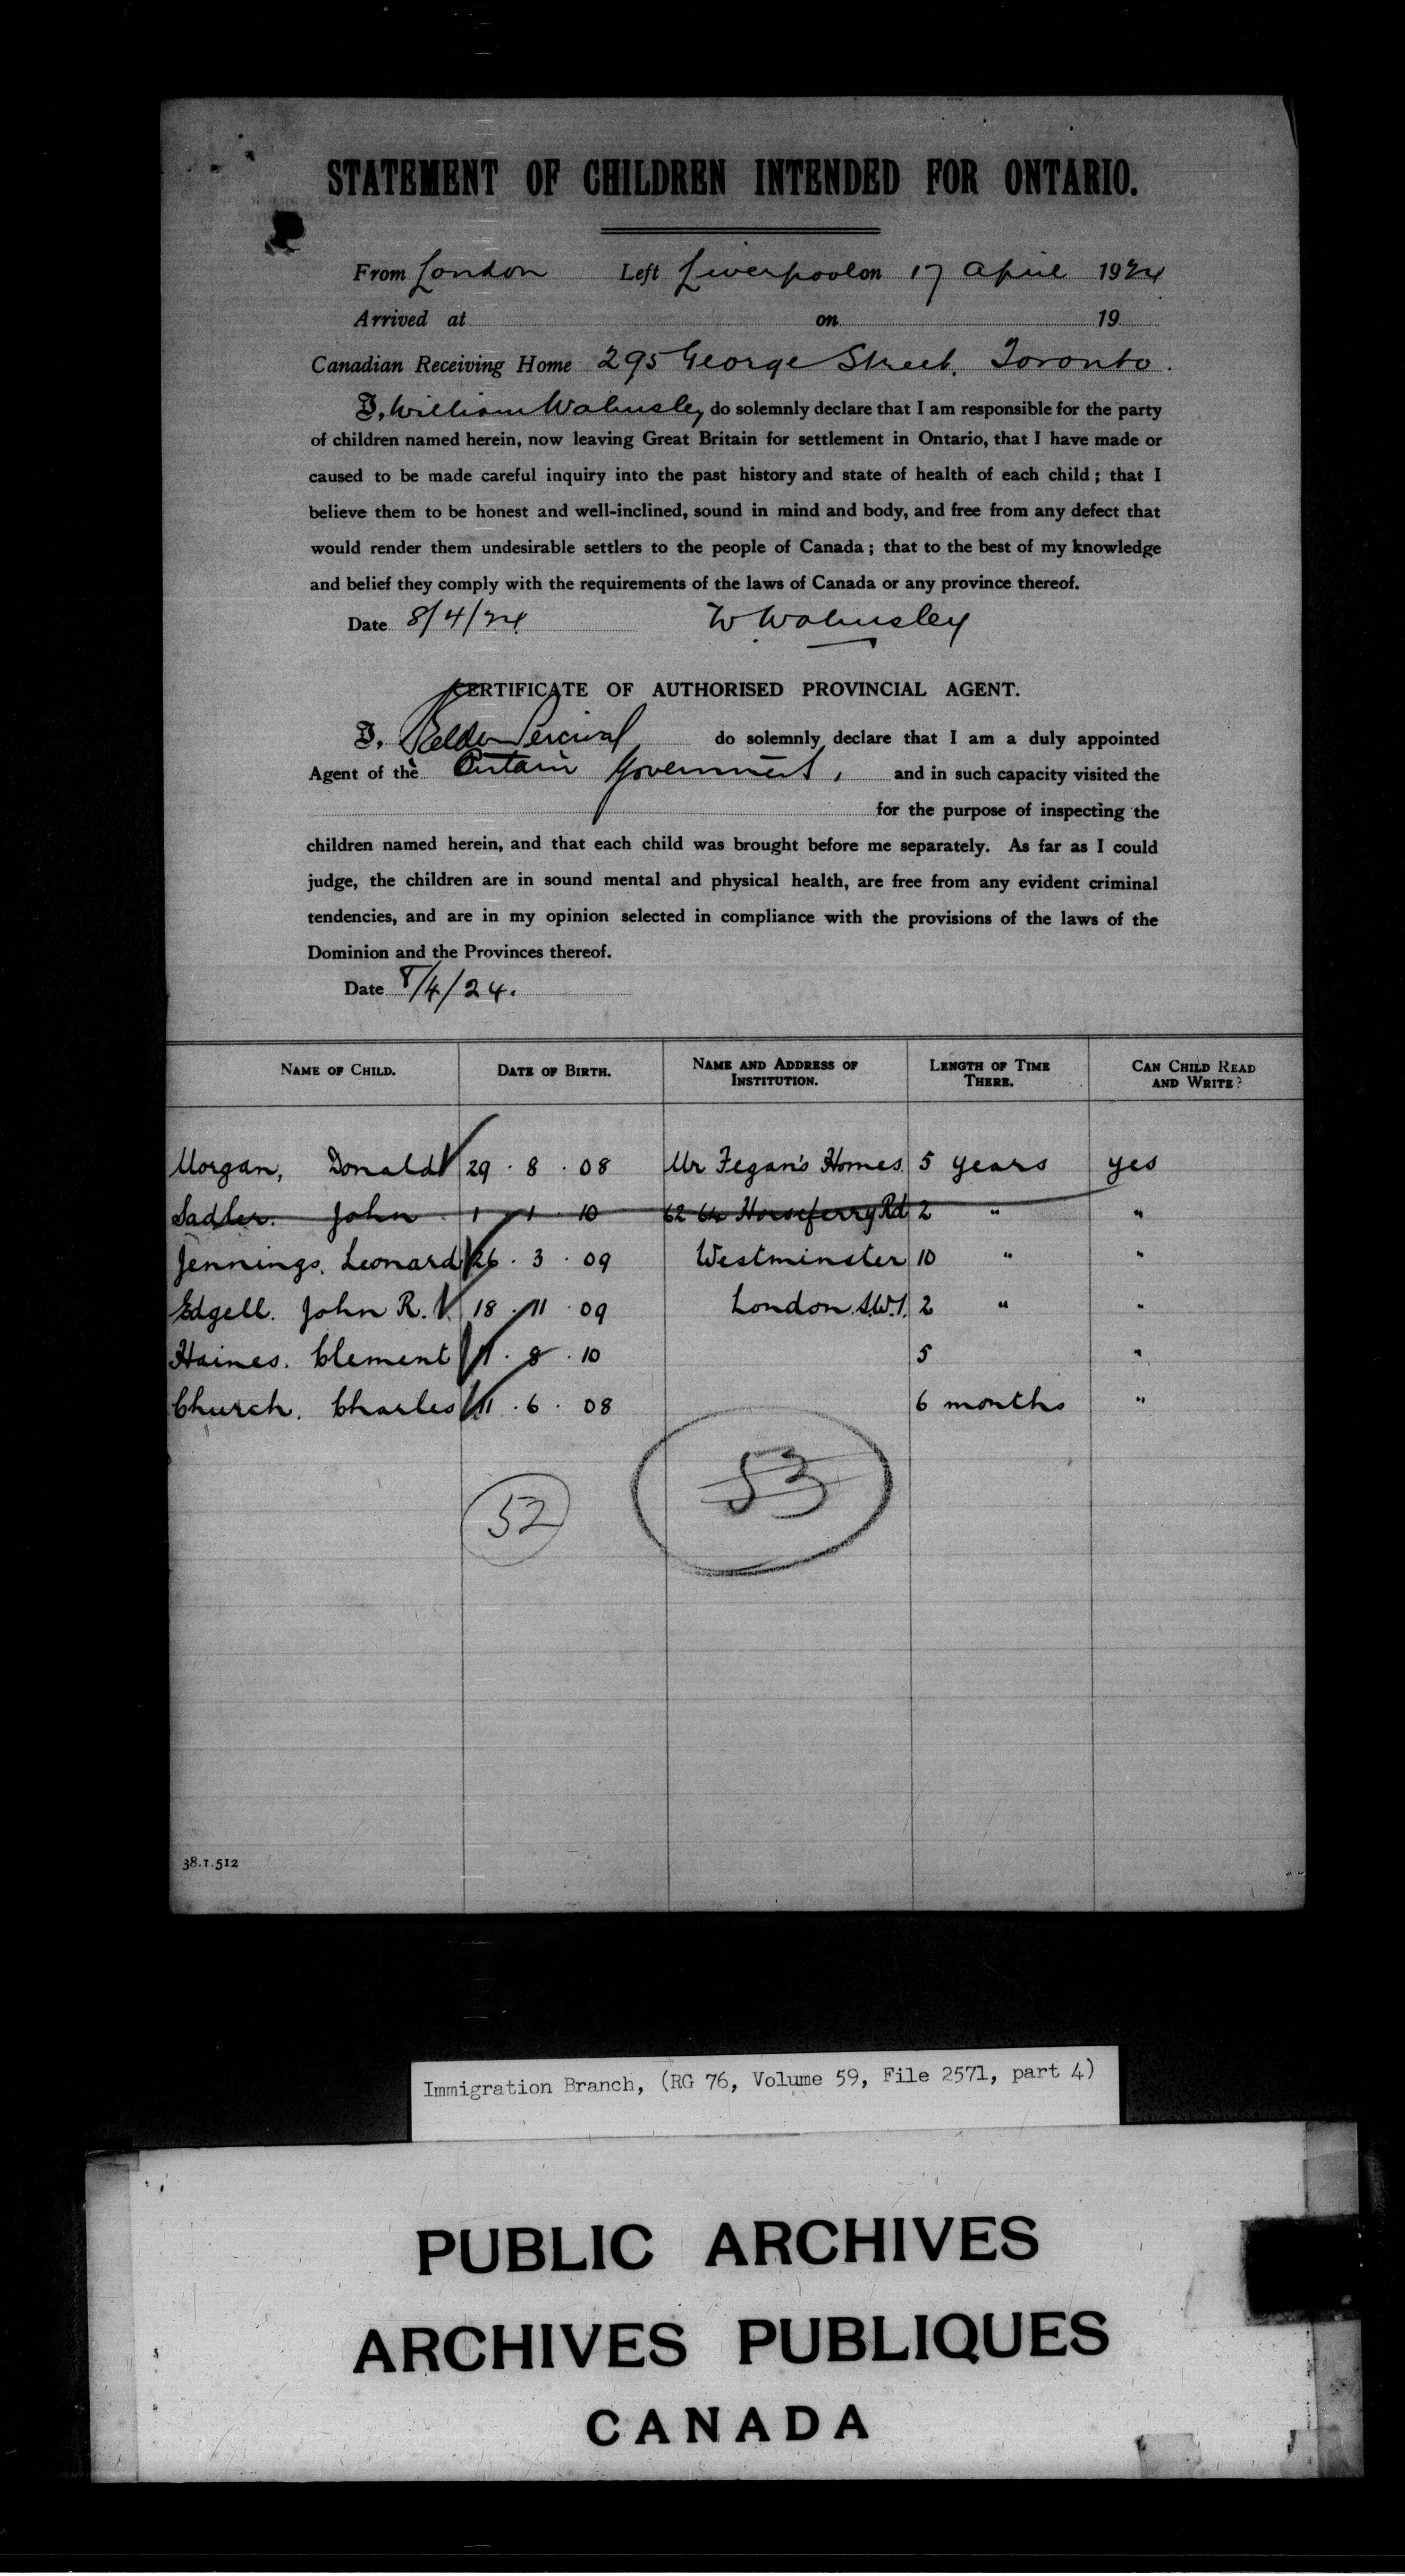 STATEMENT OF CHILDREN INTENDED FOR ONTARIO.
From London Left Liverpool on 17 April 1924
Arrived at on 19
Canadian Receiving Home 295 George Street. Toronto.
I, William Walmsley do solemnly declare that I am responsible for the party
of children named herein, now leaving Great Britain for settlement in Ontario, that I have made or
caused to be made careful inquiry into the past history and state of health of each child; that I
believe them to be honest and well-inclined, sound in mind and body, and free from any defect that
would render them undesirable settlers to the people of Canada; that to the best of my knowledge
and belief they comply with the requirements of the laws of Canada or any province thereof.
Date 8/4/24 W Walmsley
CERTIFICATE OF AUTHORISED PROVINCIAL AGENT.
I, Percival do solemnly declare that I am a duly appointed
Agent of the Ontario Government, and in such capacity visited the
for the purpose of inspecting the
children named herein, and that each child was brought before me separately. As far as I could
judge, the children are in sound mental and physical health, are free from any evident criminal
tendencies, and are in my opinion selected in compliance with the provisions of the laws of the
Dominion and the Provinces thereof.
Date 8/4/24.
NAME OF CHILD. DATE OF BIRTH. NAME AND ADDRESS OF INSTITUTION. LENGTH OF TIME THERE. CAN CHILD READ AND WRITE?
Morgan, Donald 29 . 8 . 08 Mr Fegan's Homes 5 years yes
Sadler. John 1 . 1 . 10 62 64 Horseferry Rd 2 " "
Jennings. Leonard 26 . 3 . 09 Westminster 10 " "
Edgell. John R. 18 . 11 . 09 London. S.W.1. 2 " "
Haines. Clement 11 . 8 . 10 5 "
Church. Charles 11 . 6 . 08 6 months "
53
52
38.1.512
Immigration Branch, (RG 76, Volume 59, File 2571, part 4)
PUBLIC ARCHIVES
ARCHIVES PUBLIQUES
CANADA